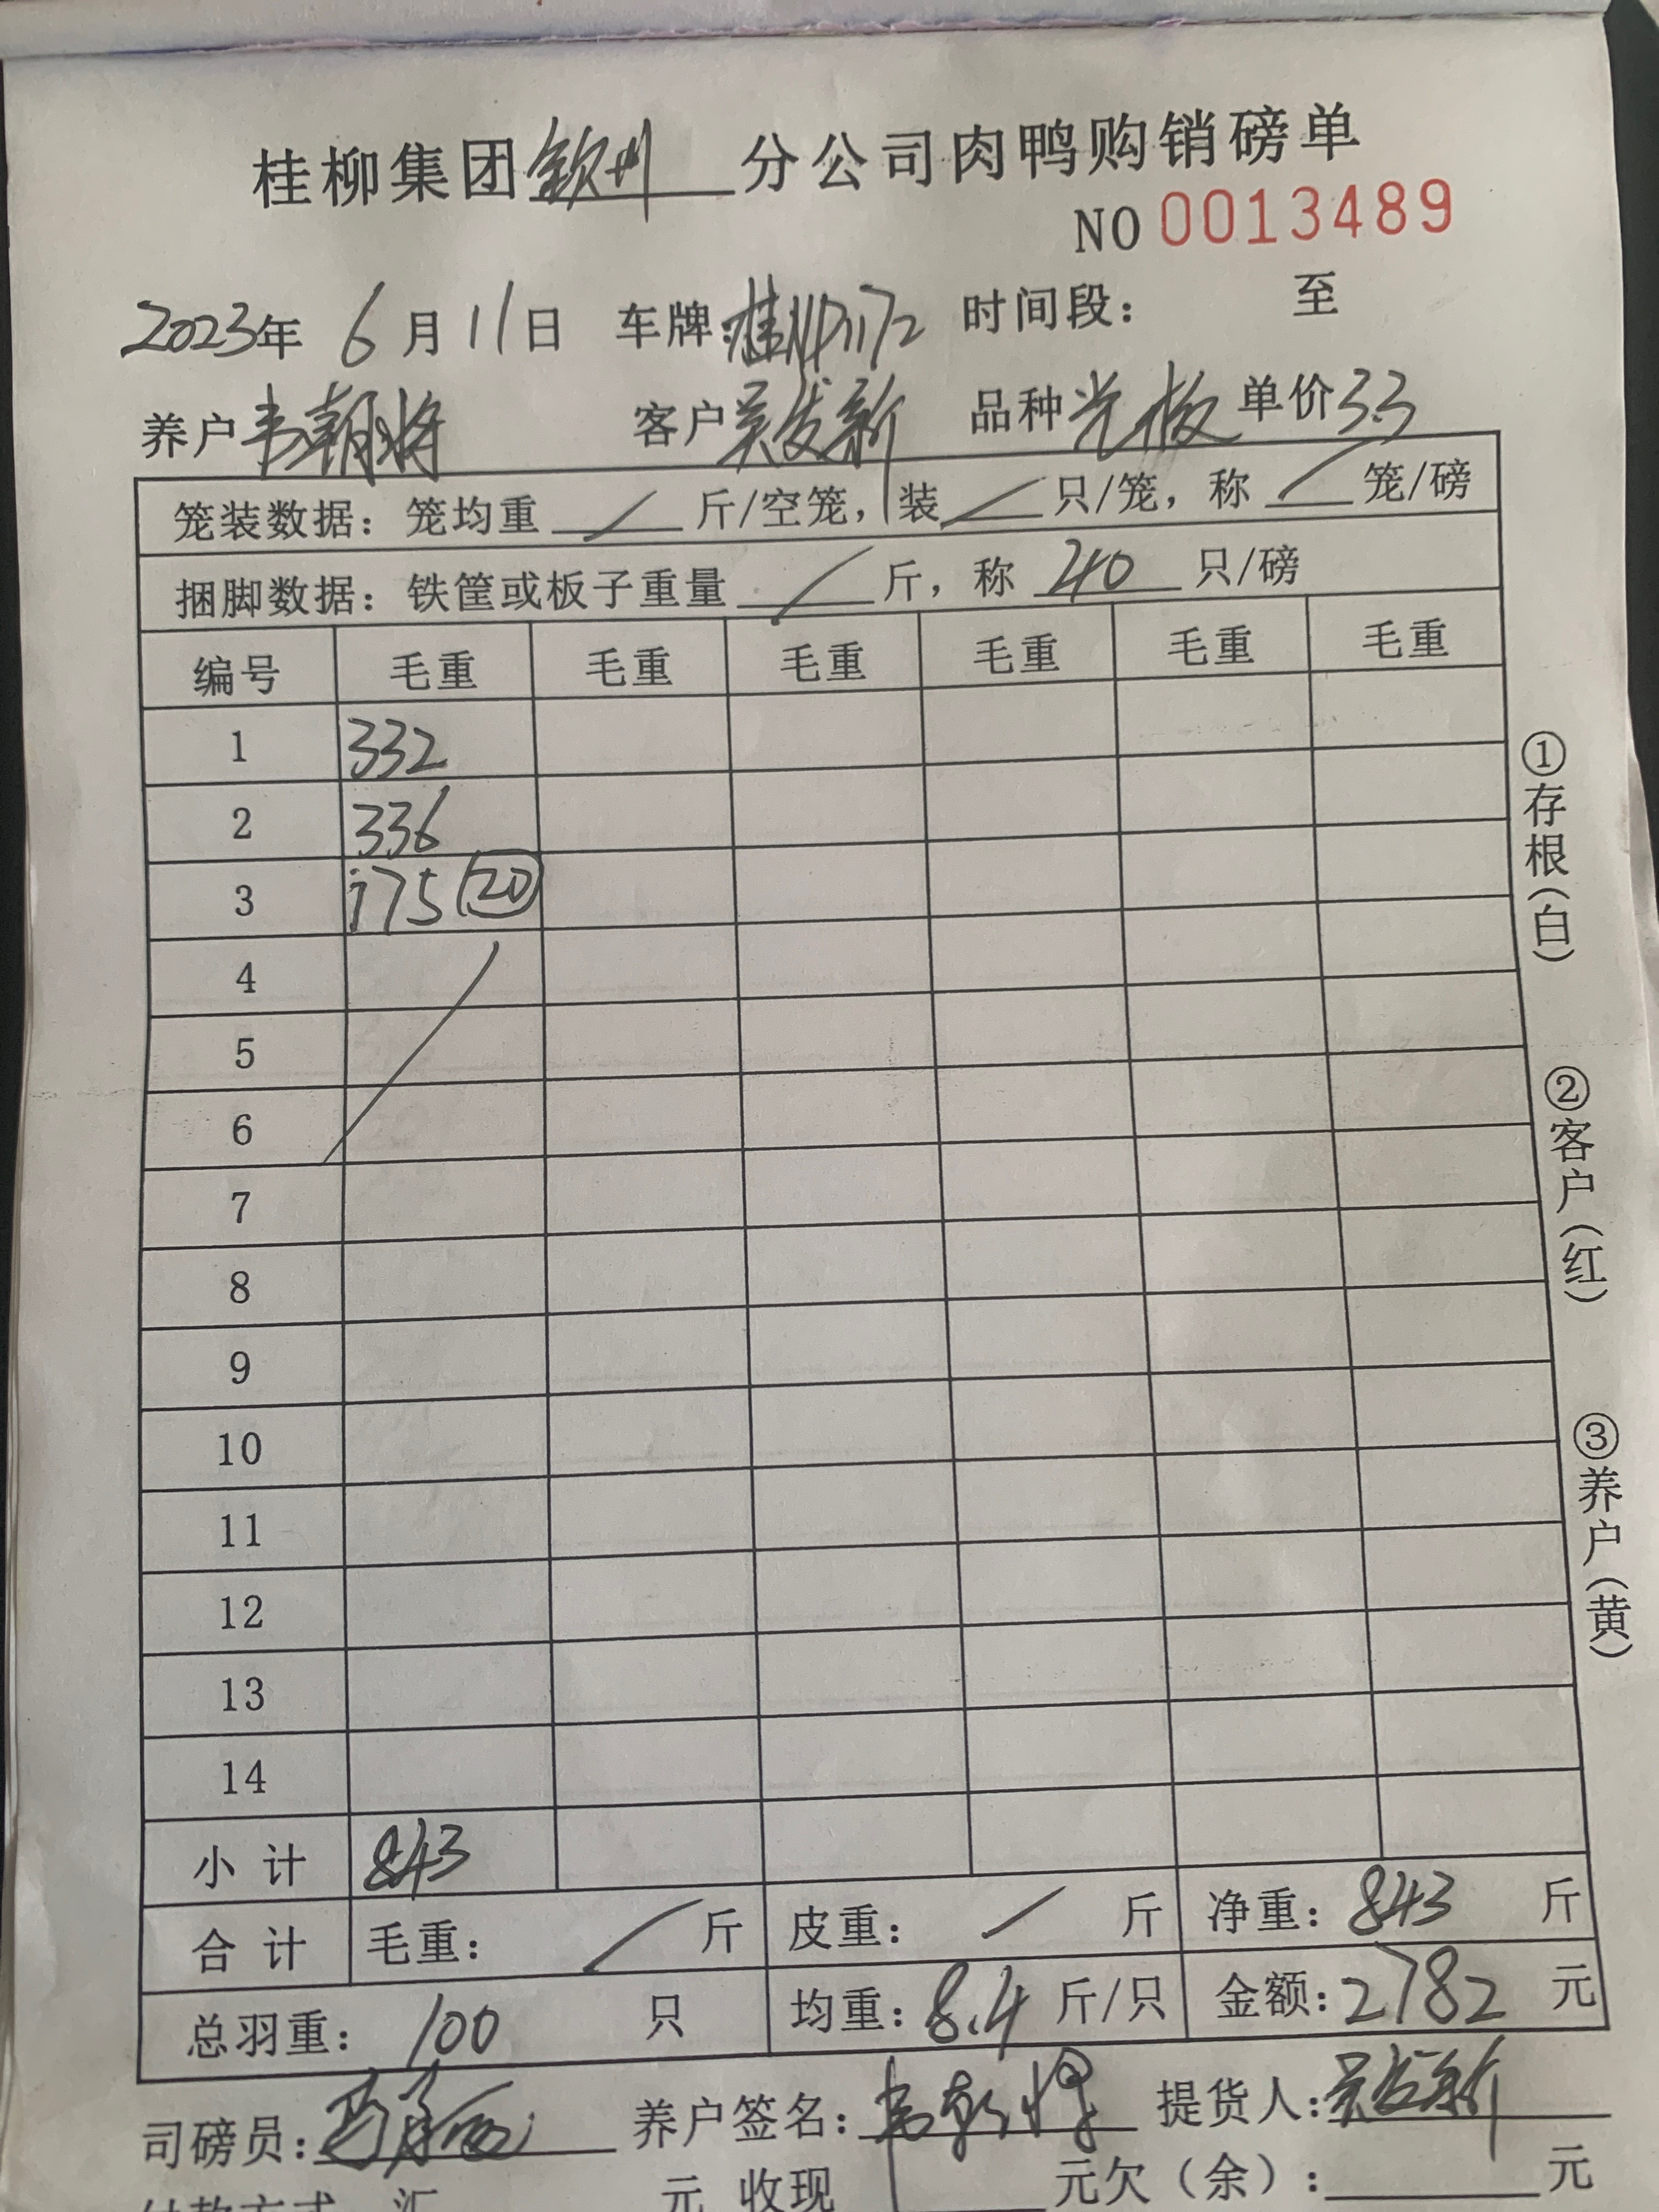 桂柳集团钦州分公司肉鸭购销磅单
NO 0013489
2023年 6月11日 车牌:桂NP1172 时间段: 至
养户韦朝将 客户吴发新 品种光板 单价3.3
笼装数据: 笼均重 / 斤/空笼, 装 / 只/笼, 称 / 笼/磅
捆脚数据: 铁筐或板子重量 / 斤, 称 40 只/磅
编号 毛重 毛重 毛重 毛重 毛重 毛重
1 332
2 336
3 175 (20)
4
5
6
7
8
9
10
11
12
13
14
小计 843
合计 毛重: / 斤 皮重: / 斤 净重: 843 斤
总羽重: 100 只 均重: 8.4 斤/只 金额: 2782 元
司磅员: 养户签名: 提货人:吴发新
付款方式 汇 元 收现 元欠(余): 元
①存根(白)
②客户(红)
③养户(黄)